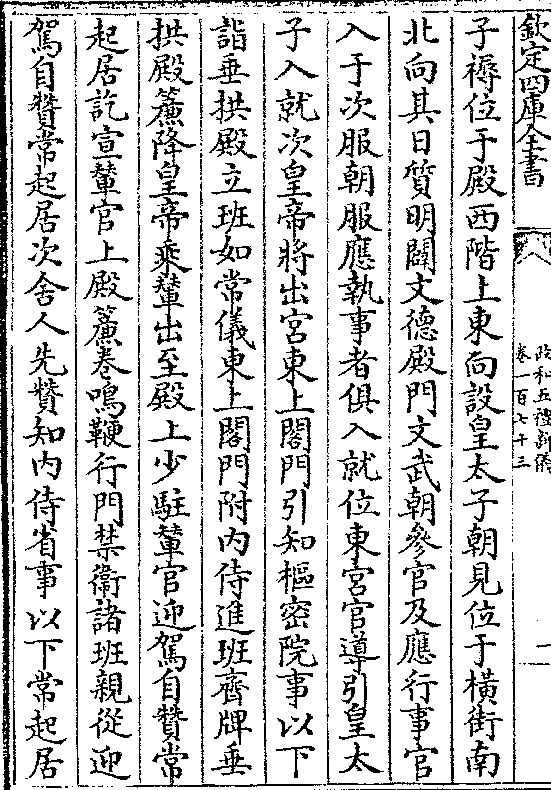 欽定四庫全書
政和五禮新儀
卷一百七十三
一
子褥位于殿西階上東向設皇太子朝見位于橫街南
北向其日質明闢文德殿門文武朝參官及應行事官
入于次服朝服應執事者俱入就位東宮官導引皇太
子入就次皇帝將出宮東上閤門引知樞密院事以下
詣垂拱殿立班如常儀東上閤門附內侍進班齊牌垂
拱殿簾降皇帝乘輦出至殿上少駐輦官迎駕自贊常
起居訖宣輦官上殿簾卷鳴鞭行門禁衛諸班親從迎
駕自贊常起居次舍人先贊知內侍省事以下常起居